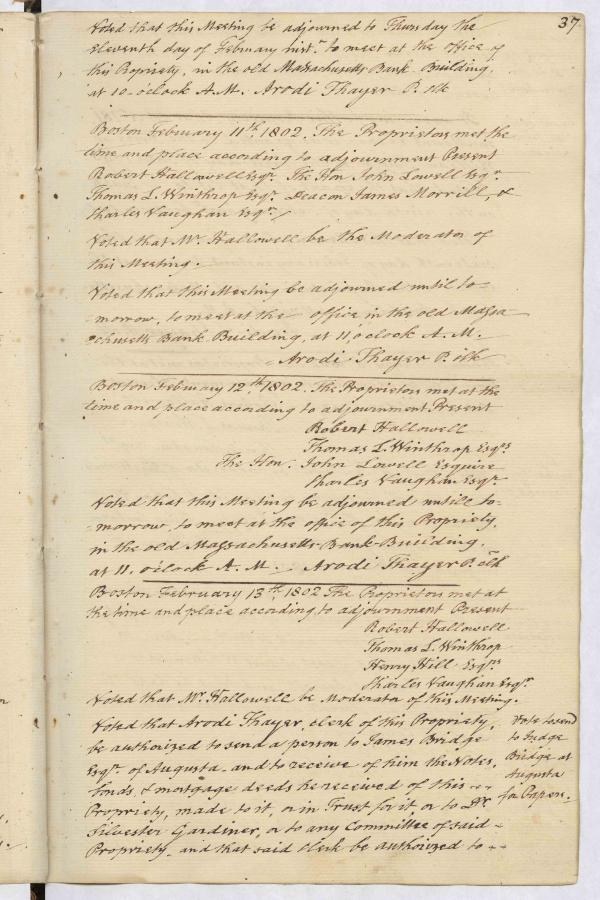 37
Voted that this Meeting be adjourned to Thursday the
eleventh day of February inst.t to meet at the office of
this Propriety, in the old Massachusetts Bank Building,
at 10 oclock A.M. Arodi Thayer P. clk
Boston February 11th. 1802. The Proprietors met the
time and place according to adjournment Present
Robert Hallowell Esqr. The Hon John Lowell Esqr.
Thomas L. Winthrop Esqr. Deacon James Morrill, &
Charles Vaughan Esqr.
Voted that Mr. Hallowell be the Moderator of
this Meeting.
Voted that this Meeting be adjourned until to-
-morrow, to meet at the office in the old Massa
chusetts Bank Building, at 11, oclock A. M.
Arodi Thayer P. clk
Boston February 12.th 1802. The Proprietors met at the
time and place according to adjournment Present
Robert Hallowell
Thomas L. Winthrop Esqrs
The Hon. John Lowell Esquire
Charles Vaughan Esqr
Voted that this Meeting be adjourned untill to-
-morrow, to meet at the office of this Propriety,
in the old Massachusetts Bank Building,
at 11, oclock A. M. Arodi Thayer P. clk
Boston February 13th. 1802 The Proprietors met at
the time and place according to adjournment Present
Robert Hallowell
Thomas L. Winthrop
Henry Hill Esqrs
Charles Vaughan Esqr.
Voted that Mr. Hallowell be Moderator of this Meeting.
Voted that Arodi Thayer, clerk of this Propriety,
be authorized to send a person to James Bridge
Esqr. of Augusta and to receive of him the Notes,
bonds, & mortgage deeds he received of this
Propriety, made to it, or in Trust for it or to Dr.
Silvester Gardiner, or to any Committee of said
Propriety, and that said clerk be authorized to
Vote to send
to Judge
Bridge at
Augusta
for Papers.